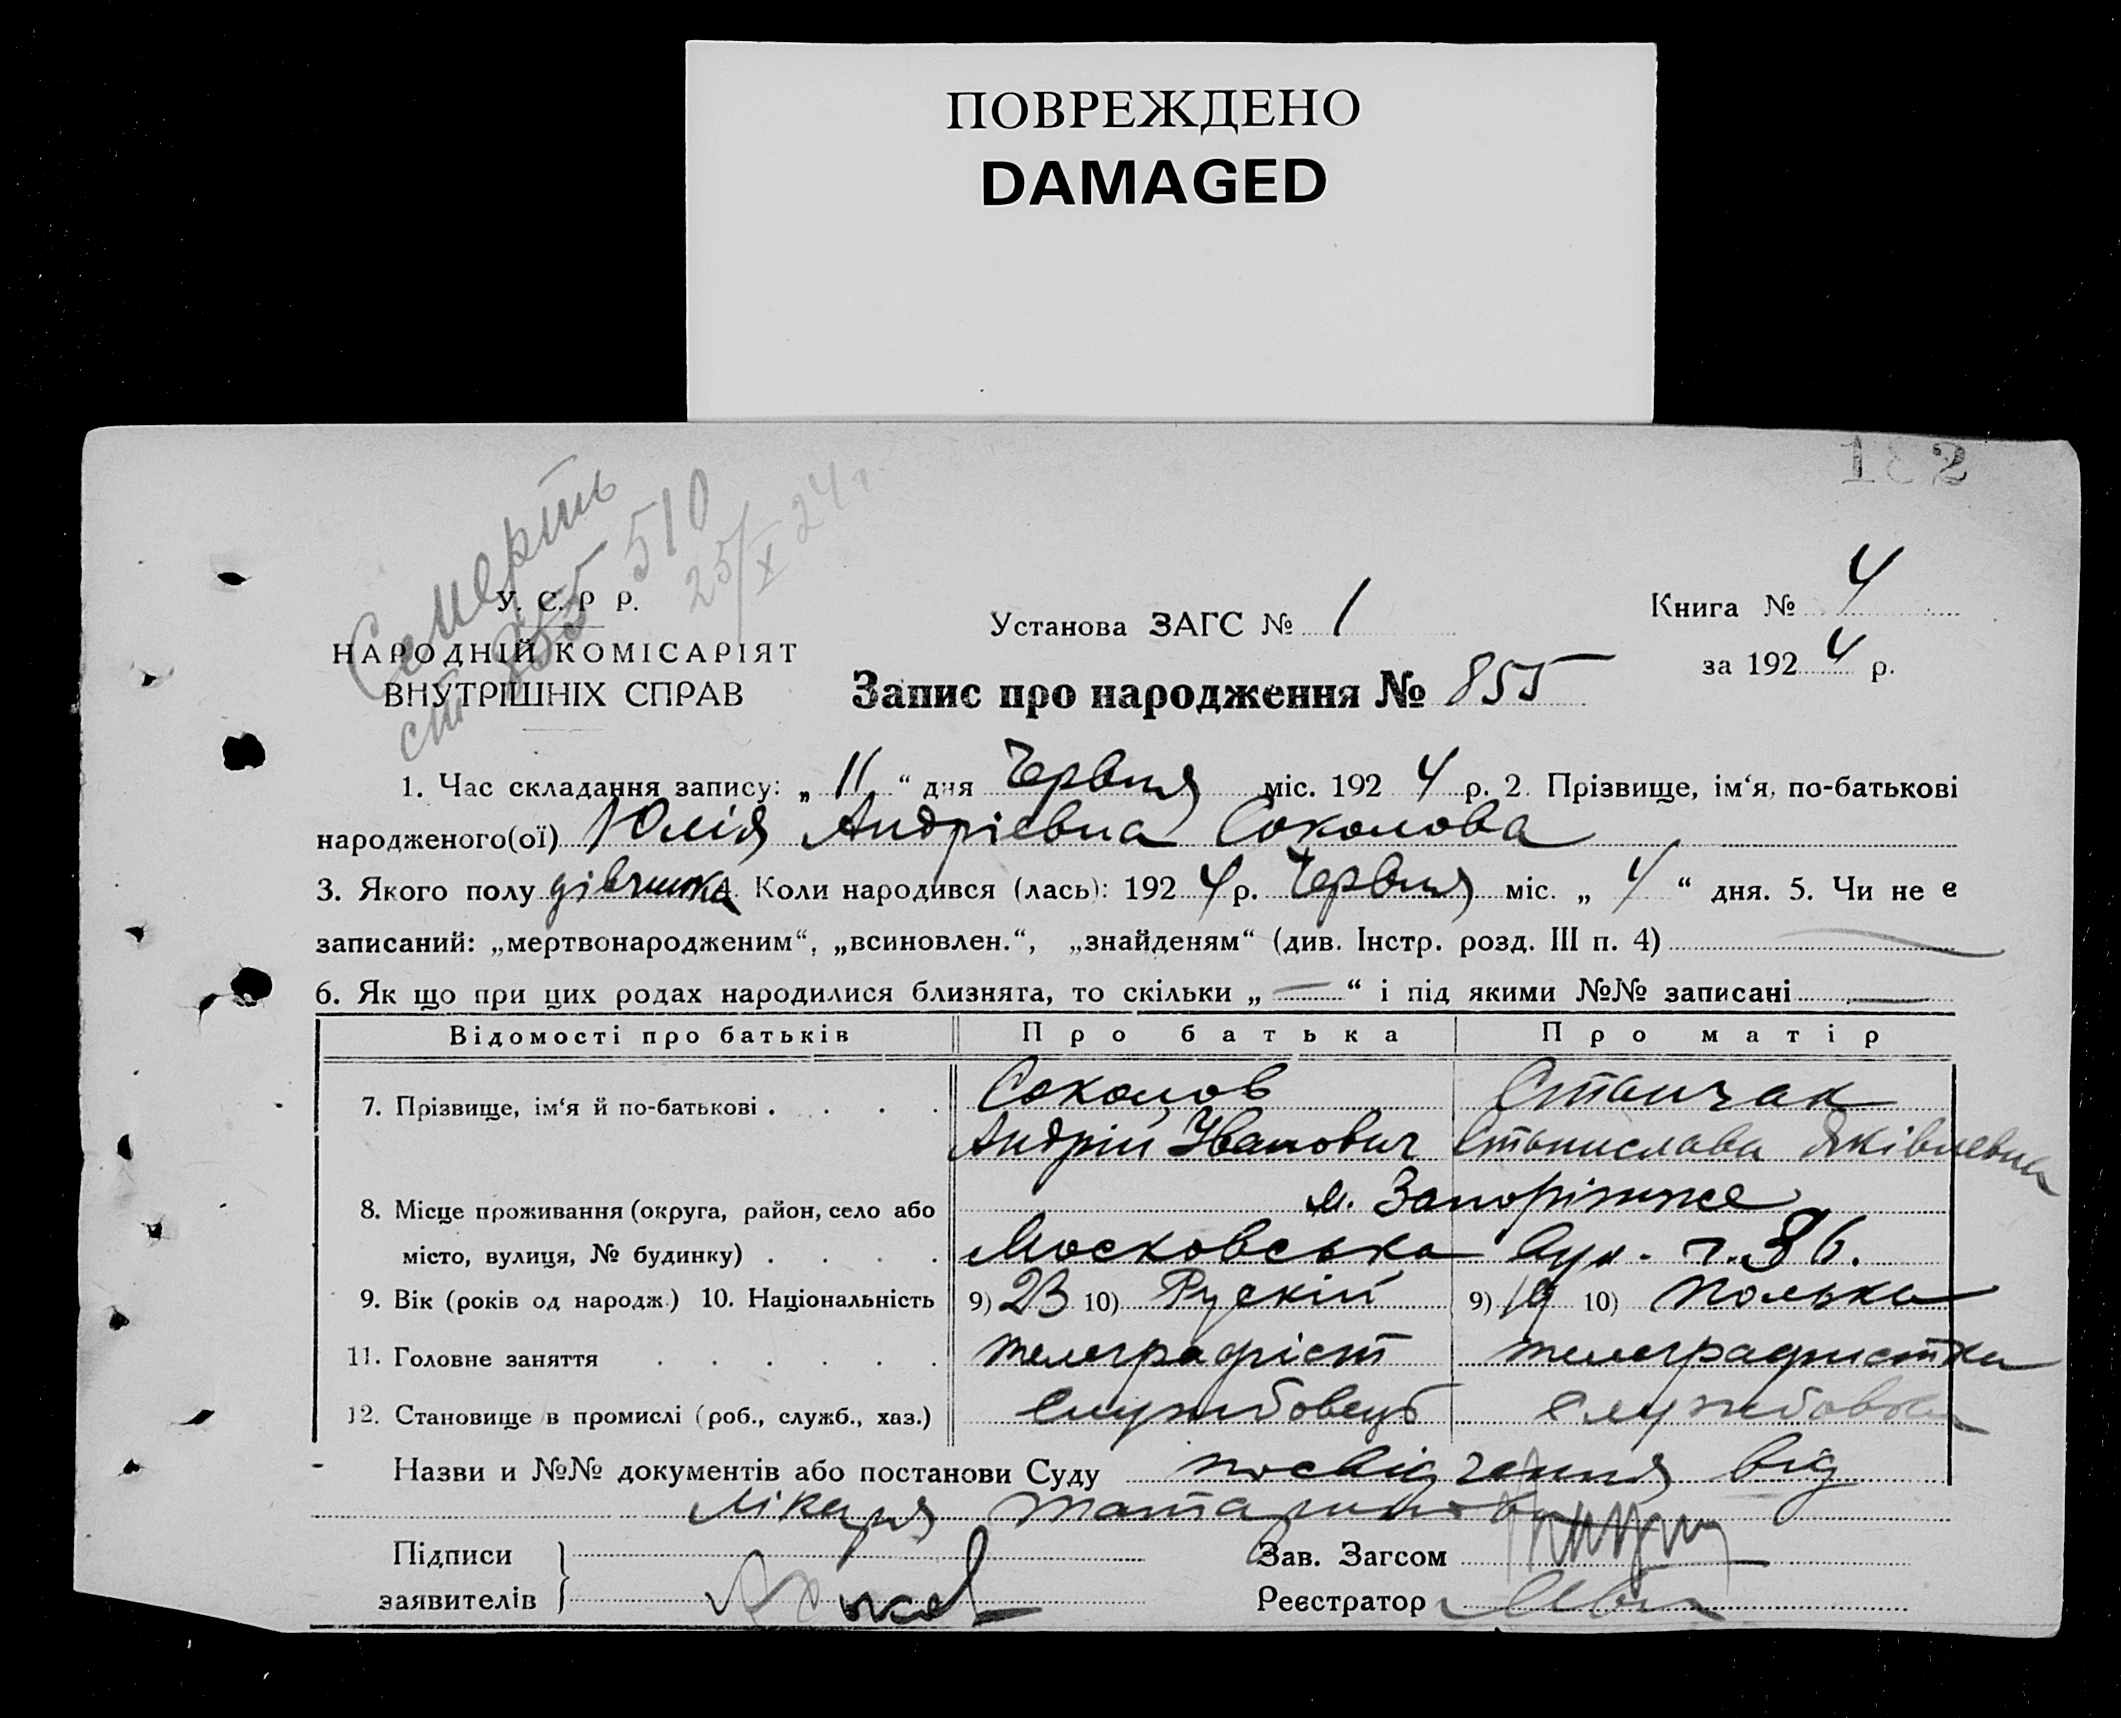 ПОВРЕЖДЕНО
DAMAGED
182
Смерть
ст 855 510
25/X 24 г
У. С. Р Р.
НАРОДНІЙ КОМІСАРІЯТ
ВНУТРІШНІХ СПРАВ
Установа ЗАГС № 1
Книга № 4
за 1924 р.
Запис про народження № 855
1. Час складання запису: „ 11 “ дня Червня міс. 1924 р. 2. Прізвище, ім‘я, по-батькові
народженого(ої) Юлія Андрієвна Соколова
3. Якого полу дівчинка 4. Коли народився (лась): 1924 р. Червня міс. „ 4 “ дня. 5. Чи не є
записаний: „мертвонародженим“, „всиновлен.“, „знайденям“ (див. Інстр. розд. III п. 4)
6. Як що при цих родах народилися близнята, то скільки „ — “ і під якими №№ записані —
Відомості про батьків Про батька Про матір
7. Прізвище, ім‘я й по-батькові . . . . Соколов Станчак
Андрій Иванович Станислава Яківлевна
8. Місце проживання (округа, район, село або м. Запоріжже
місто, вулиця, № будинку) . . . . Московська вул. 86.
9. Вік (років од народж.) 10. Національність 9) 23 10) Рускій 9) 19 10) Полька
11. Головне заняття . . . . . . телеграфіст телеграфистка
12. Становище в промислі (роб., служб., хаз.) службовець службовка
Назви и №№ документів або постанови Суду посвідчення від
лікаря
Підписи
заявителів
Зав. Загсом
Реєстратор